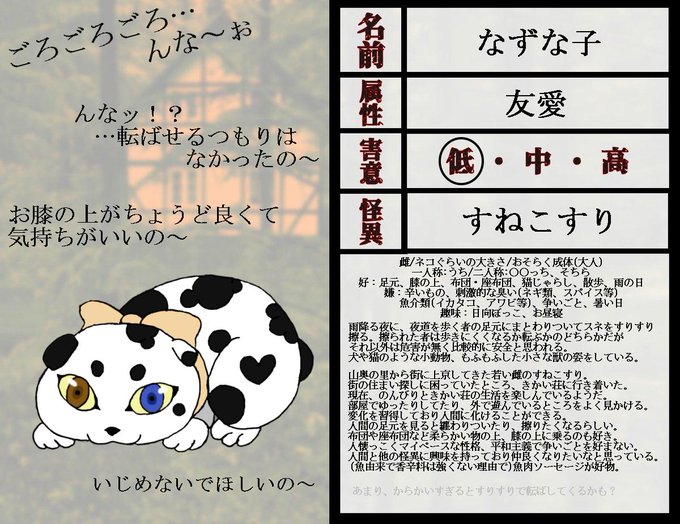 ごろごろごろ…
んな～ぉ
んなッ！？
…転ばせるつもりは
なかったの～
お膝の上がちょうど良くて
気持ちがいいの～
いじめないでほしいの～
名前
なずな子
属性
友愛
害意
低・中・高
怪異
すねこすり
雌/ネコぐらいの大きさ/おそらく成体(大人)
一人称:うち/二人称:〇〇っち、そちら
好：足元、膝の上、布団・座布団、猫じゃらし、散歩、雨の日
嫌：辛いもの、刺激的な臭い(ネギ類、スパイス等)
魚介類(イカタコ、アワビ等)　争いごと、暑い日
趣味：日向ぼっこ、お昼寝
雨降る夜に、夜道を歩く者の足元にまとわりついてスネをすりすり
擦る。擦られた者は歩きにくくなるか転ぶかのどちらかだが
それ以外は危害が無く比較的に安全と思われる。
犬や猫のような小動物、もふもふした小さな獣の姿をしている。
山奥の里から街に上京してきた若い雌のすねこすり。
街の住まい探しに困っていたところ、きかい荘に行き着いた。
現在、のんびりときかい荘の生活を楽しんでいるようだ。
部屋でゆったりしてたり、外で遊んでいるところをよく見かける。
変化を習得しており人間に化けることができる。
人間の足元を見ると纏わりついたり、擦りたくなるらしい。
布団や座布団など柔らかい物の上、膝の上に乗るのも好き。
人懐っこくマイペースな性格、平和主義で争いごとを好まない。
人間と他の怪異に興味を持っており仲良くなりたいなと思っている。
(魚由来で香辛料は強くない理由で)魚肉ソーセージが好物。
あまり、からかいすぎるとすりすりで転ばしてくるかも？